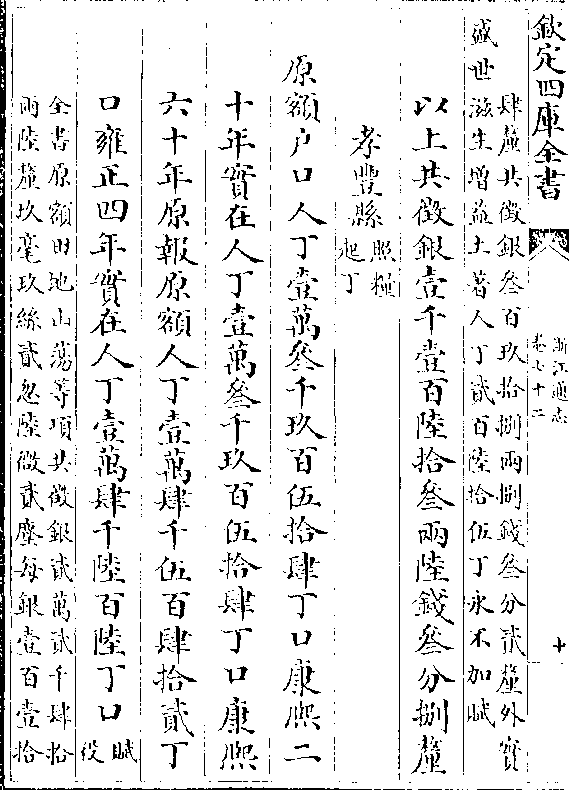 欽定四庫全書
浙江通志
卷七十二
十
肆釐共徵銀叁百玖拾捌兩捌錢叁分貳釐外實
盛世滋生增益土著人丁貳百陸拾伍丁永不加賦
以上共徵銀壹千壹百陸拾叁兩陸錢叁分捌釐
孝豐縣照糧
起丁
原額户口人丁壹萬叁千玖百伍拾肆丁口康熙二
十年實在人丁壹萬叁千玖百伍拾肆丁口康熙
六十年原報原額人丁壹萬肆千伍百肆拾貳丁
口雍正四年實在人丁壹萬肆千陸百陸丁口賦
役
全書原額田地山蕩等項共徵銀貳萬貳千肆拾
兩陸釐玖毫玖絲貳忽陸微貳塵每銀壹百壹拾